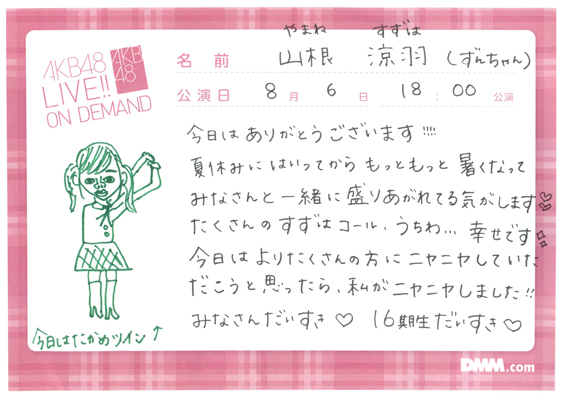 やまね すずは
AKB48
LIVE!!
ON DEMAND
AKB
48
名前 山根 涼羽 (ずんちゃん)
公演日 8月 6日 18:00 公演
今日は ありがとうございます!!!!
夏休みにはいってから もっともっと 暑くなって
みなさんと一緒に盛りあがれてる気がします♡
たくさんの すずはコール、うちわ... 幸せです
今日は よりたくさんの方に ニヤニヤしていた
だこうと思ったら、私がニヤニヤしました!!
みなさんだいすき♡ 16期生だいすき♡
今日はたかめツイン↑
DMM.com